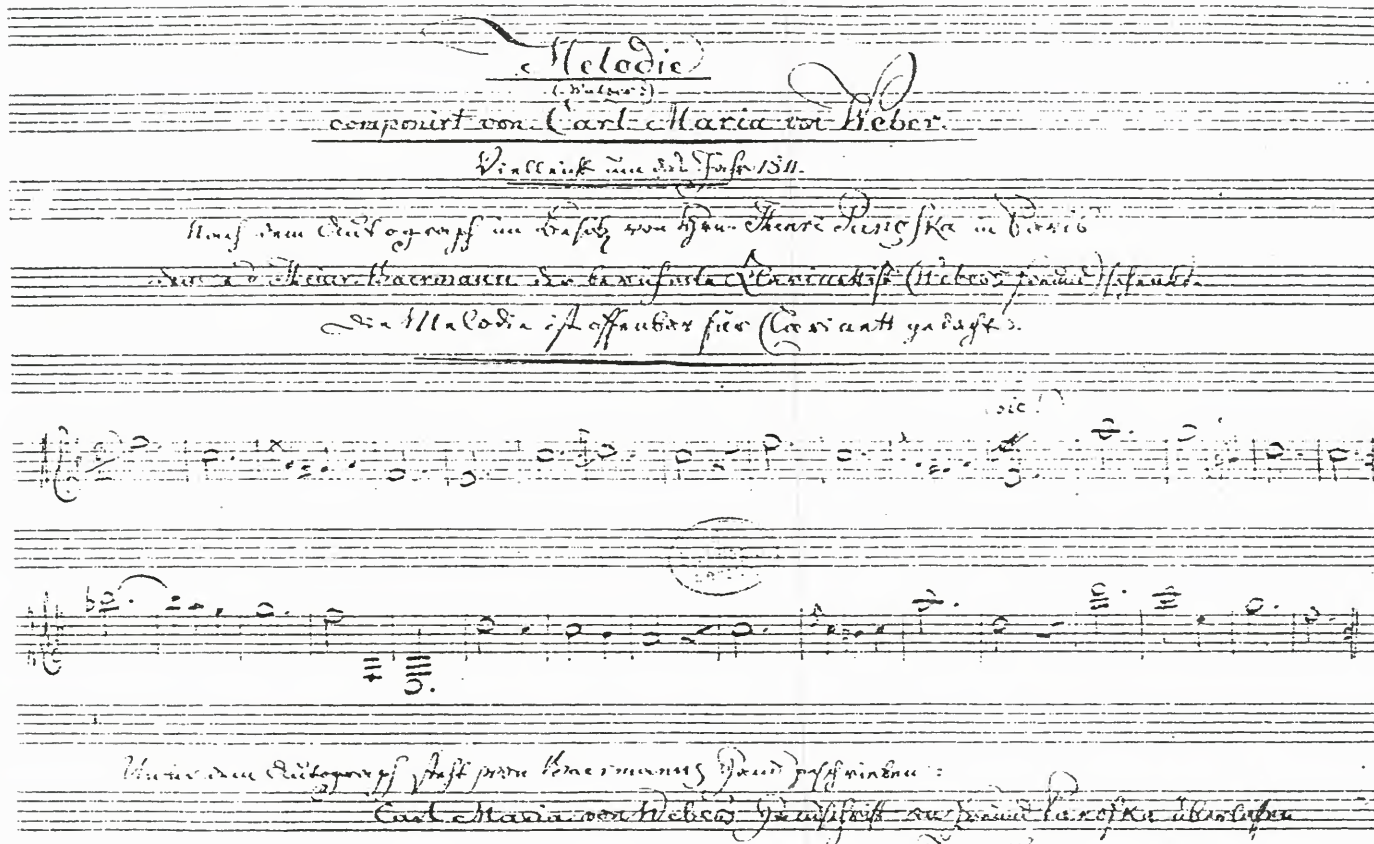 Melodie
(Walzer)
componirt von Carl Maria von Weber.
Vielleicht um das Jahr 1811.
Nach dem Autograph im Besitz von Hrn. Henri Panofka in Paris
dem es Heinr. Baermann der berühmte Clarinettist (Webers Freund) schenkte.
Die Melodie ist offenbar für Clarinett gedacht.
(sic!)
Unter dem Autograph steht von Baermanns Hand geschrieben:
Carl Maria von Webers Handschrift an Freund Panofka überlassen